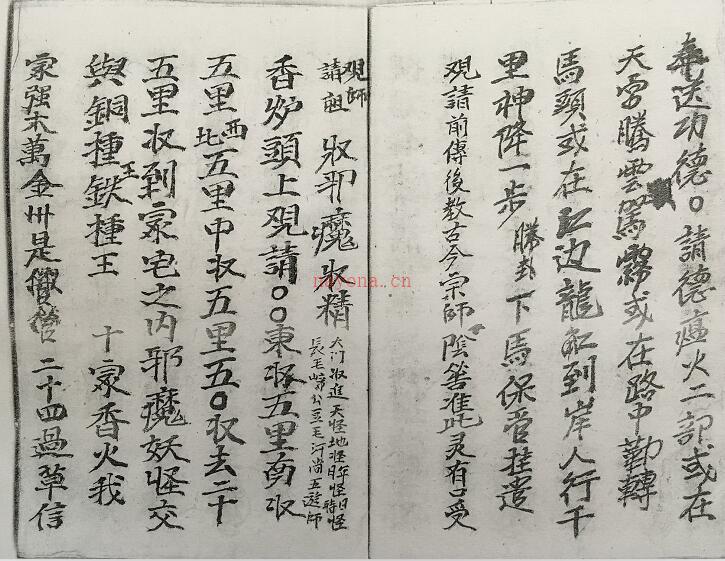 奉送功德○請德瘟火二部或在
天雲騰雲駕霧或在路中勒轉
馬頭或在江边龍船到岸人行千
里神降一步勝卦下馬保管挂遣
覌請前傳後教古今宗師陰筶准此灵有口受
覌師
請祖 收邪魔收精
大门收進天怪地怪年怪日怪時怪
長毛 公豆毛河尚五遊師
香炉頭上覌請○○東收五里南收
五里西北五里中收五里五五○收去二十
五里收到家宅之内邪魔妖怪交
與銅種王鉄種王 十家香火我
家强木萬金州是 营二十四過草信
nayona.cn